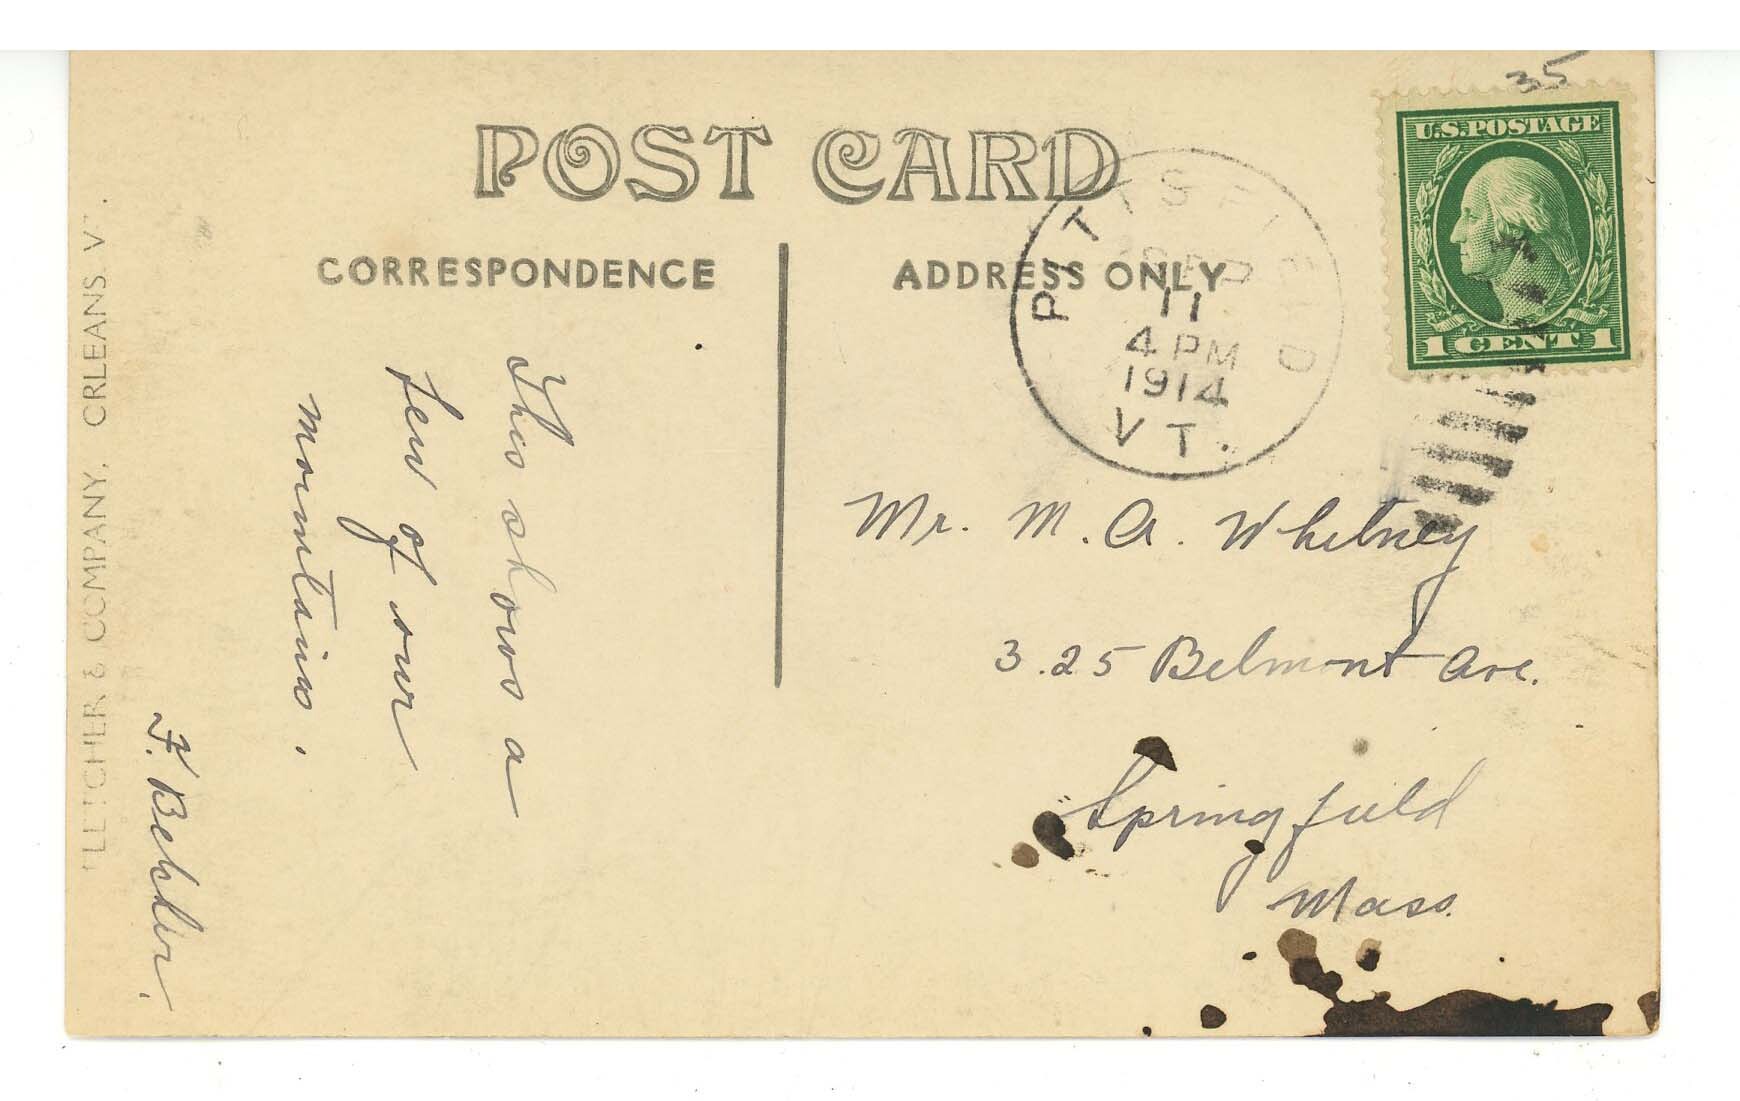 35
U.S. POSTAGE
1 CENT 1
POST CARD
CORRESPONDENCE
ADDRESS ONLY
PITTSFIELD
11
4 PM
1914
VT.
This shows a
few of our
mountains.
F. Behler.
Mr. M. A. Whitney
325 Belmont Ave.
Springfield
Mass.
& COMPANY, ORLEANS V